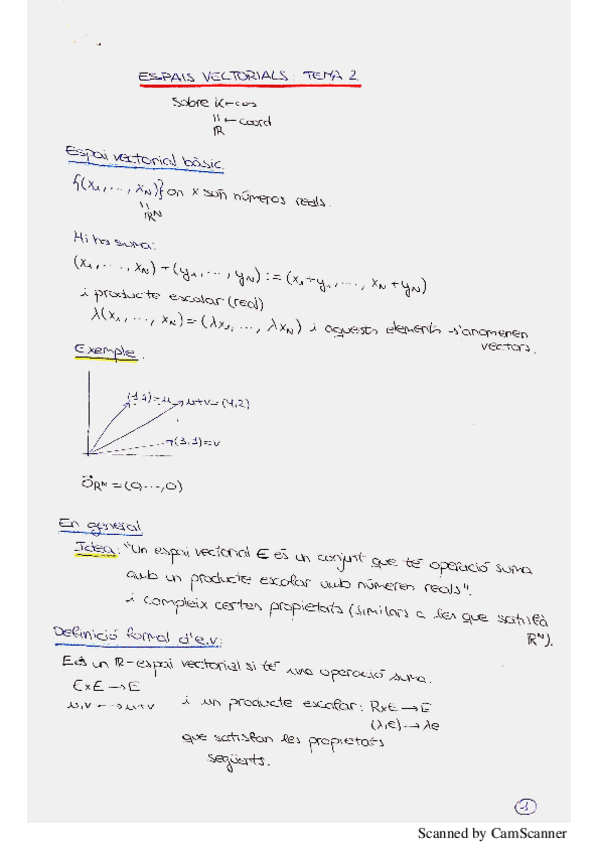 ESPAIS VECTORIALS: TEMA 2
Sobre K ← cos
" ← coord
ℝ
Espai vectorial bàsic
{(x₁, ..., x_N)} on x són números reals.
"
ℝᴺ
Hi ha suma:
(x₁, ..., x_N) + (y₁, ..., y_N) := (x₁+y₁, ..., x_N+y_N)
i producte escalar (real)
λ(x₁, ..., x_N) = (λx₁, ..., λx_N) i aquests elements s'anomenen
vectors.
Exemple.
(1,1)=u u+v=(4,2)
(3,1)=v
0⃗_ℝᴺ = (0, ..., 0)
En general
Idea: "Un espai vectorial E és un conjunt que té operació suma
amb un producte escalar amb números reals".
i compleix certes propietats (similars a les que satisfà
ℝᴺ).
Definició formal d'e.v:
E és un ℝ-espai vectorial si té una operació suma.
E×E → E
u,v → u+v
i un producte escalar: ℝ×E → E
(λ,e) → λe
que satisfan les propietats
següents.
1
Scanned by CamScanner